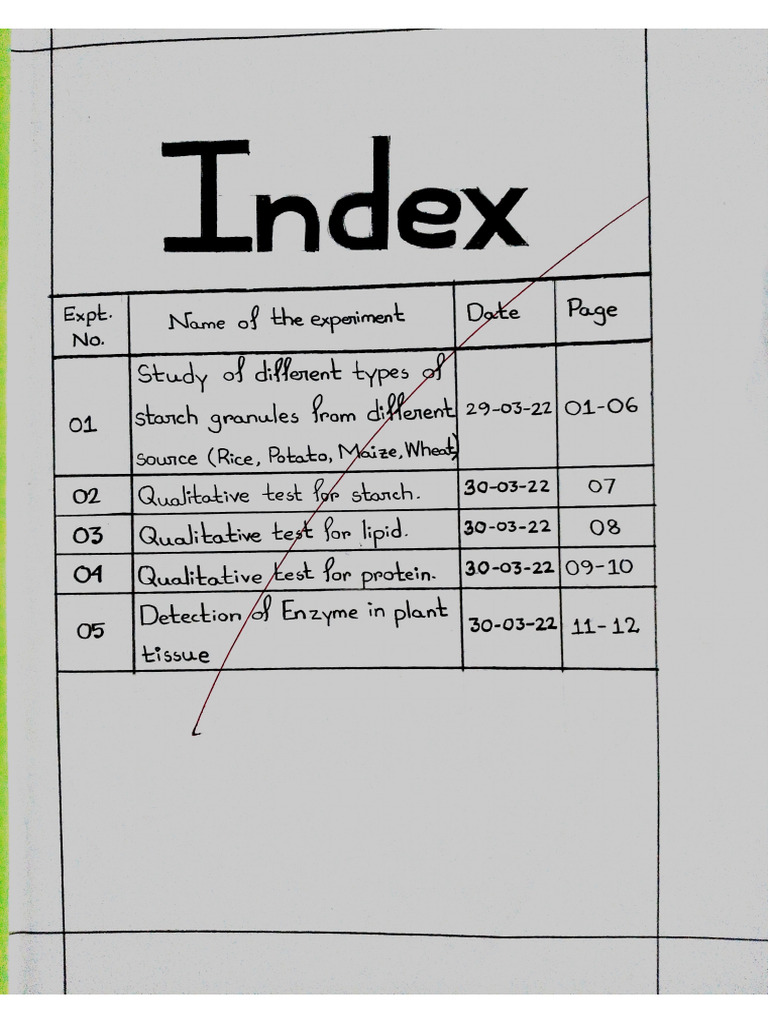 Index
Expt. No. Name of the experiment Date Page
Study of different types of
01 starch granules from different 29-03-22 01-06
source (Rice, Potato, Maize, Wheat)
02 Qualitative test for starch. 30-03-22 07
03 Qualitative test for lipid. 30-03-22 08
04 Qualitative test for protein. 30-03-22 09-10
05 Detection of Enzyme in plant 30-03-22 11-12
tissue